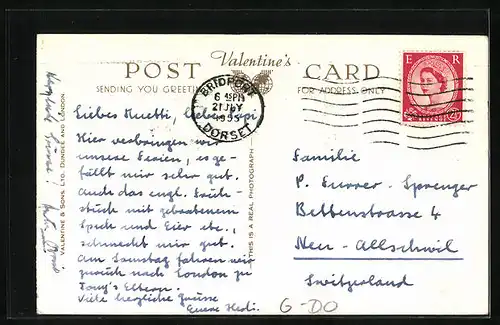 Valentine's
POST CARD
SENDING YOU GREETI
FOR ADDRESS ONLY
BRIDPORT
6 45PM
21 JLY
1955
DORSET
E R
Liebes Muetti, Lieber Papi
Hier verbringen wir
unsere Ferien, es ge-
fällt mir sehr gut.
Auch das engl. Früh-
stück mit gebratenem
Speck und Eier etc.,
schmeckt mir gut.
Am Samstag fahren wir
zurück nach London zu
Tony's Eltern.
Viele herzliche Grüsse
Euere Hedi.
Herzliche Grüsse!
VALENTINE & SONS, LTD. DUNDEE AND LONDON
THIS IS A REAL PHOTOGRAPH
Familie
P. Furrer-Sprenger
Bettenstrasse 4
Neu-Allschwil
Switzerland
G-DO